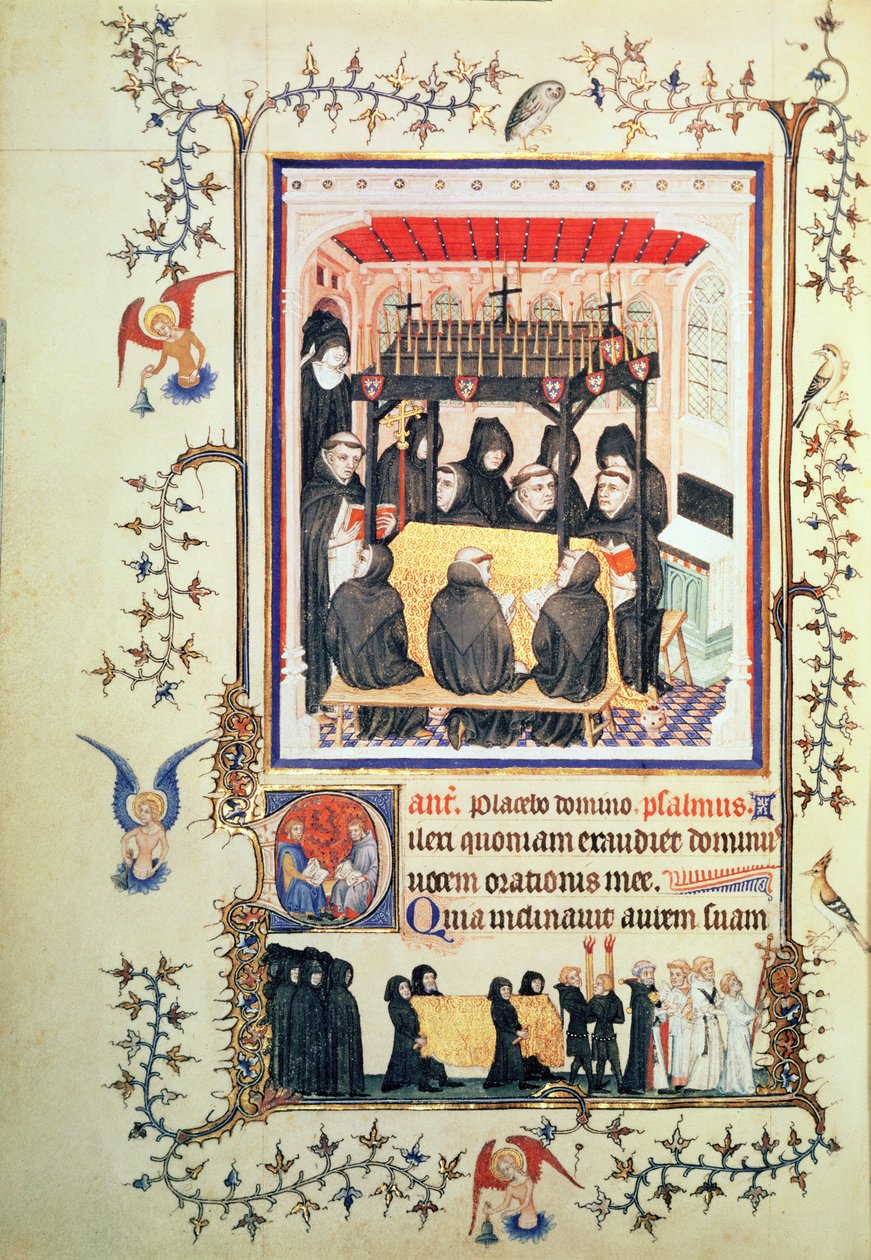 ant̃. Placebo domino. psalmus.
Dilexi quoniam exaudiet dominus
uocem orationis mee.
Quia inclinauit aurem suam